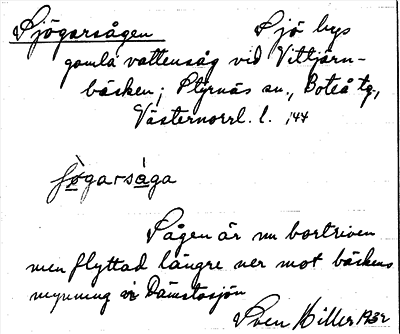 Sjögarsågen Sjö bys
gamla vattensåg vid Vittjärn-
bäcken; Styrnäs sn., Boteå tg.,
Västernorrl. l. 144
jö̀garsåga
Sågen är nu bortriven
men flyttad längre ner mot bäckens
mynning i Dämstasjön
Sven Hiller 1932